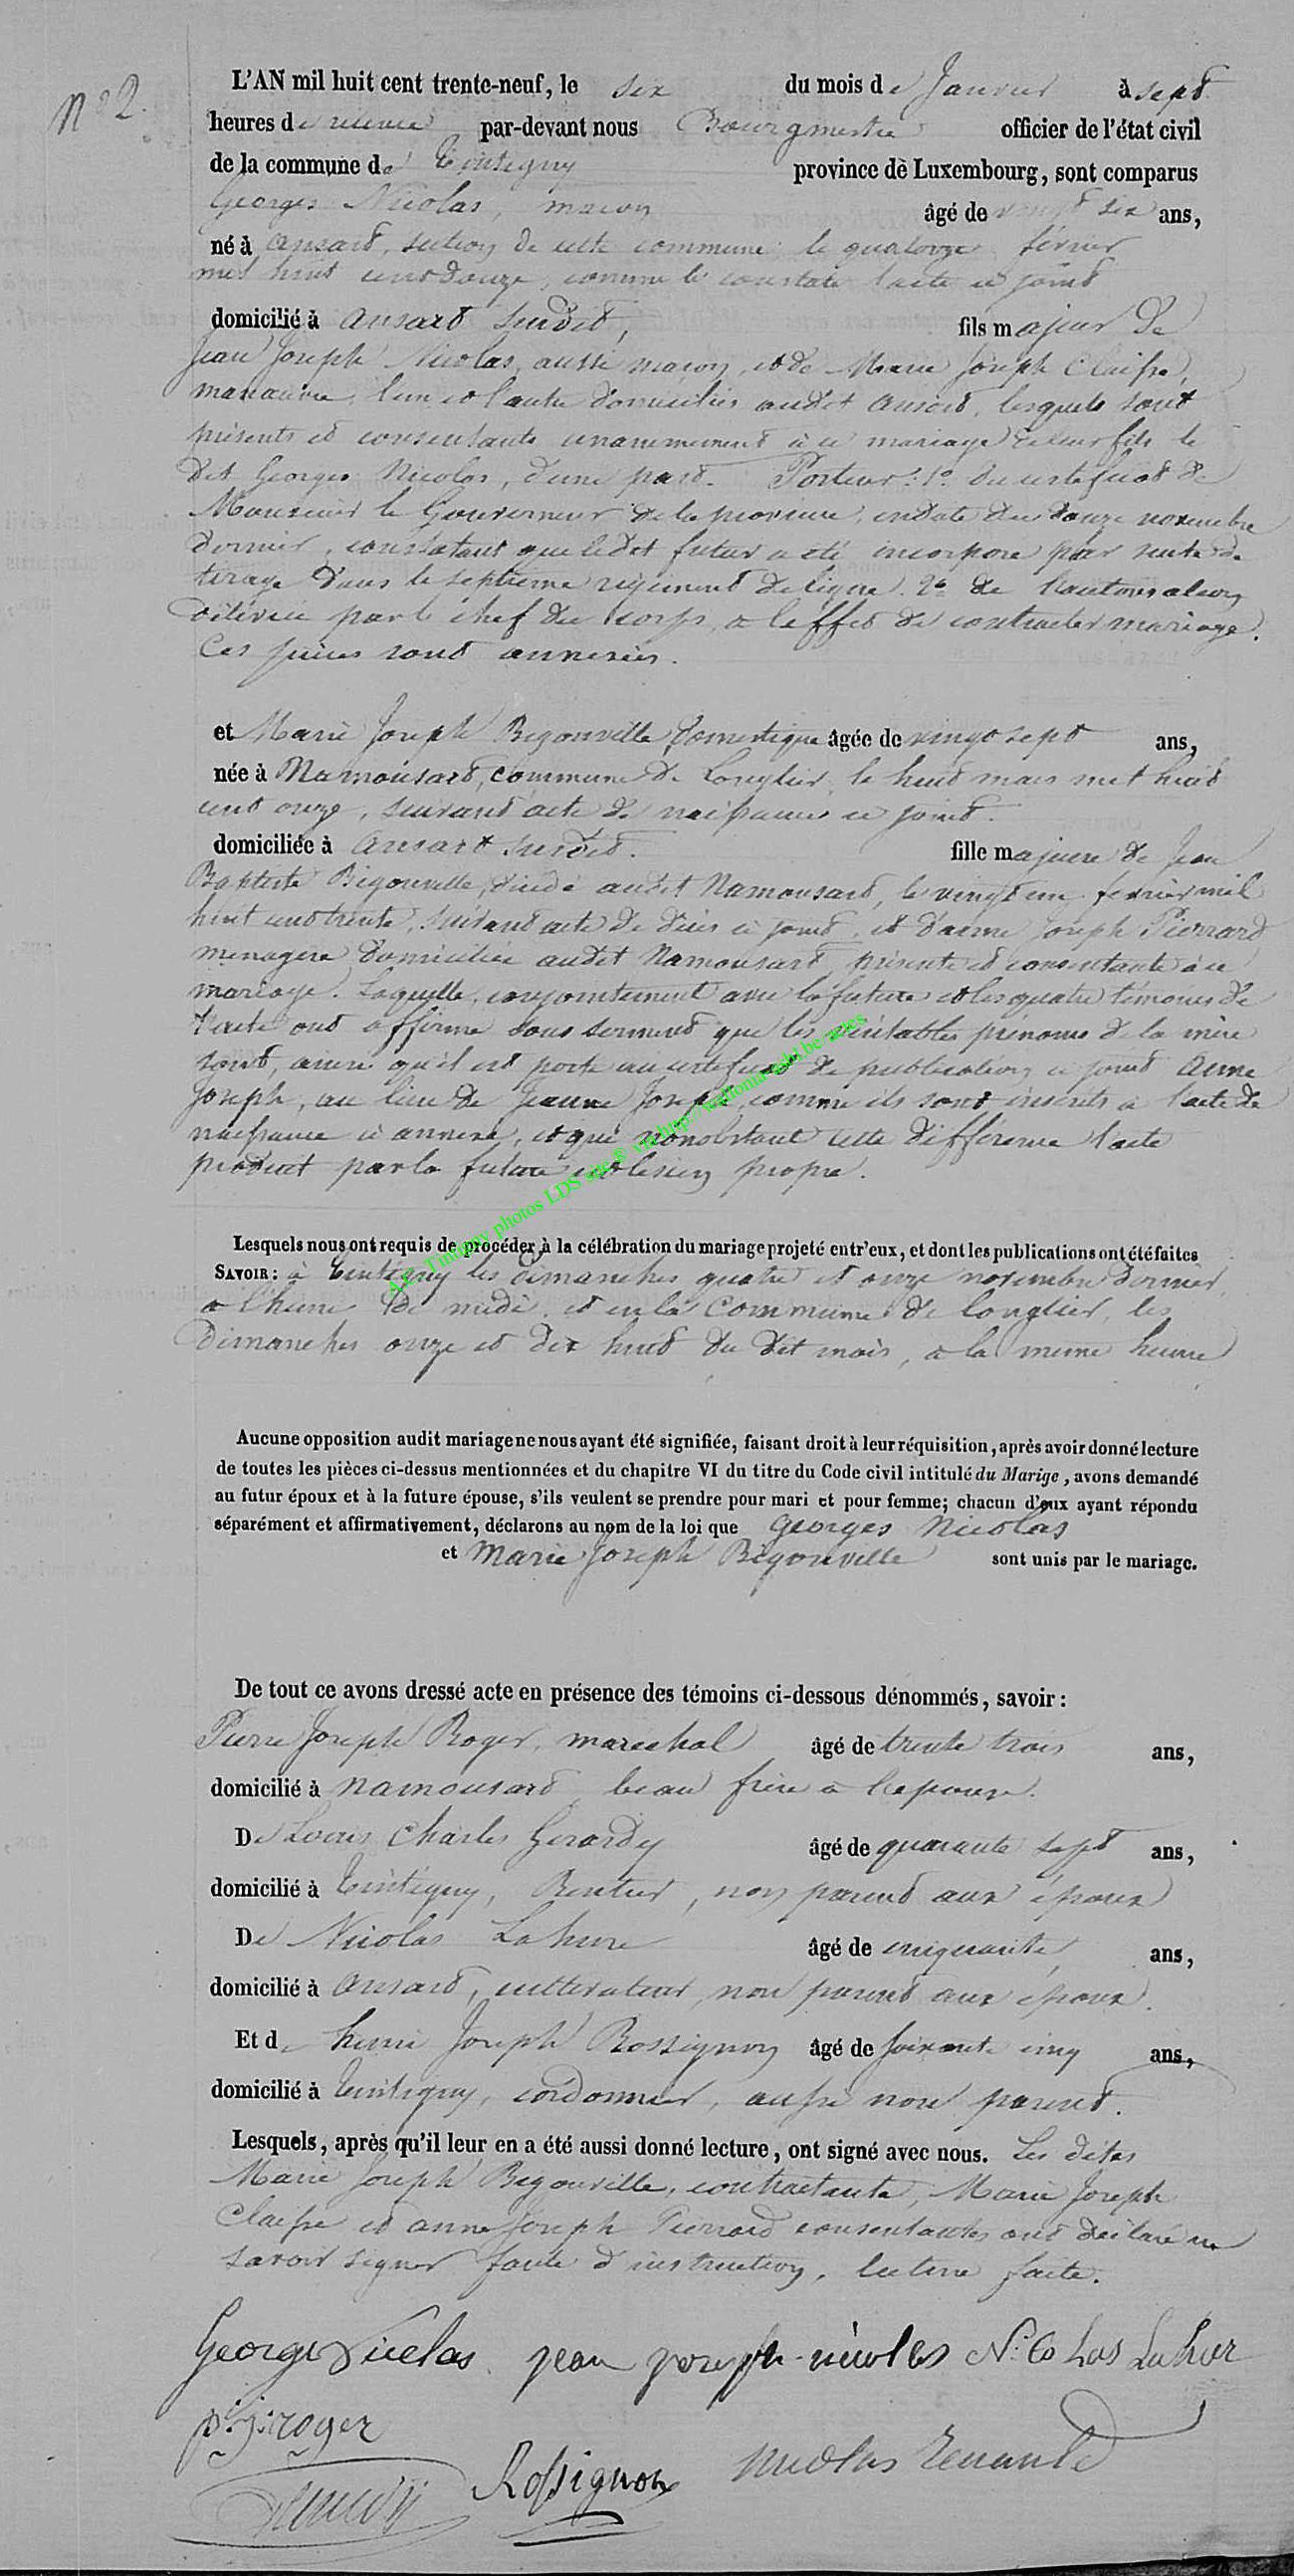 N° 2.
L'AN mil huit cent trente-neuf, le six du mois de Janvier à sept
heures de relevée par-devant nous Bourgmestre officier de l'état civil
de la commune de Tintigny province dè Luxembourg, sont comparus
Georges Nicolas, maçon âgé de vingt six ans,
né à Ansart, section de cette commune le quatorze février
mil huit cent douze, comme le constate l'acte ci joint
domicilié à Ansart susdit, fils majeur de
Jean Joseph Nicolas, aussi maçon, et de Marie Joseph Claisse,
manœuvre, l'un et l'autre domiciliés audit Ansart, lesquels sont
présents et consentants unanimement à ce mariage de leur fils le
dit Georges Nicolas, d'une part. Porteur: 1° du certificat de
Monsieur le Gouverneur de la province, en date du douze novembre
dernier, constatant que ledit futur a été incorporé par suite de
tirage dans le septième régiment de ligne. 2° de l'autorisation
délivrée par le chef du corps, à l'effet de contracter mariage.
Ces pièces sont annexées.
et Marie Joseph Bigonville, domestique âgée de vingt sept ans,
née à Namousart, commune de Longlier, le huit mars mil huit
cent onze, suivant acte de naissance ci joint.
domiciliée à Ansart susdit. fille majeure de Jean
Baptiste Bigonville, décédé audit Namousart, le vingt un février mil
huit cent trente, suivant acte de décès ci joint, et d'anne Joseph Pierrard
ménagère domiciliée audit Namousart, présente et consentante à ce
mariage. Laquelle, conjointement avec la future et les quatre témoins de
l'acte ont affirmé sous serment que les véritables prénoms de la mère
sont, ainsi qu'il est porté au certificat de publication ci joint Anne
Joseph, au lieu de Jeanne Joseph, comme ils sont inscrits à l'acte de
naissance ci annexé, et que nonobstant cette différence l'acte
produit par la future est le sien propre.
Lesquels nous ont requis de procéder à la célébration du mariage projeté entr'eux, et dont les publications ont été faites
SAVOIR: à Tintigny les dimanches quatre et onze novembre dernier,
à l'heure de midi, et en la Commune de Longlier, les
Dimanches onze et dix huit du dit mois, à la même heure
Aucune opposition audit mariage ne nous ayant été signifiée, faisant droit à leur réquisition, après avoir donné lecture
de toutes les pièces ci-dessus mentionnées et du chapitre VI du titre du Code civil intitulé du Marige, avons demandé
au futur époux et à la future épouse, s'ils veulent se prendre pour mari et pour femme; chacun d'eux ayant répondu
séparément et affirmativement, déclarons au nom de la loi que Georges Nicolas
et Marie Joseph Bigonville sont unis par le mariage.
De tout ce avons dressé acte en présence des témoins ci-dessous dénommés, savoir:
Pierre Joseph Roger, maréchal âgé de trente trois ans,
domicilié à Namousart, beau frère à l'épouse.
De Louis Charles Gerardy âgé de quarante sept ans,
domicilié à Tintigny, Rentier, non parent aux époux
De Nicolas Lahure âgé de cinquante, ans,
domicilié à Ansart, cultivateur, non parent aux époux.
Et de henri Joseph Rossignon âgé de soixante cinq ans,
domicilié à Tintigny, cordonnier, aussi non parent.
Lesquels, après qu'il leur en a été aussi donné lecture, ont signé avec nous. Les dites
Marie Joseph Bigonville, contractante, Marie Joseph
Claisse et anne Joseph Pierrard consentantes ont déclaré ne
savoir signer faute d'instruction, lecture faite.
George Nicolas jean joseph nicolas Nicolas Lahur
p: j: roger
Rossignon Nicolas